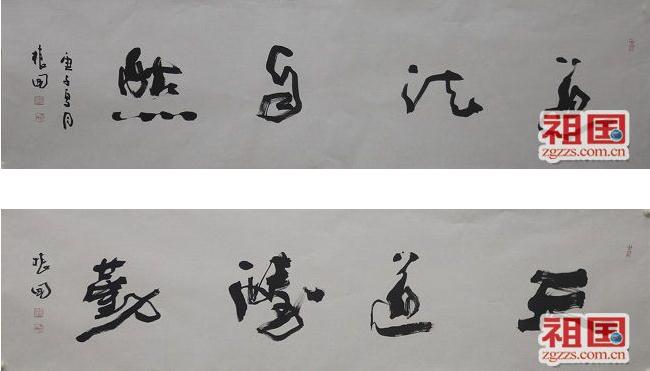 道法自然
庚子
祖国
zgzzs.com.cn
天道酬勤
祖国
zgzzs.com.cn